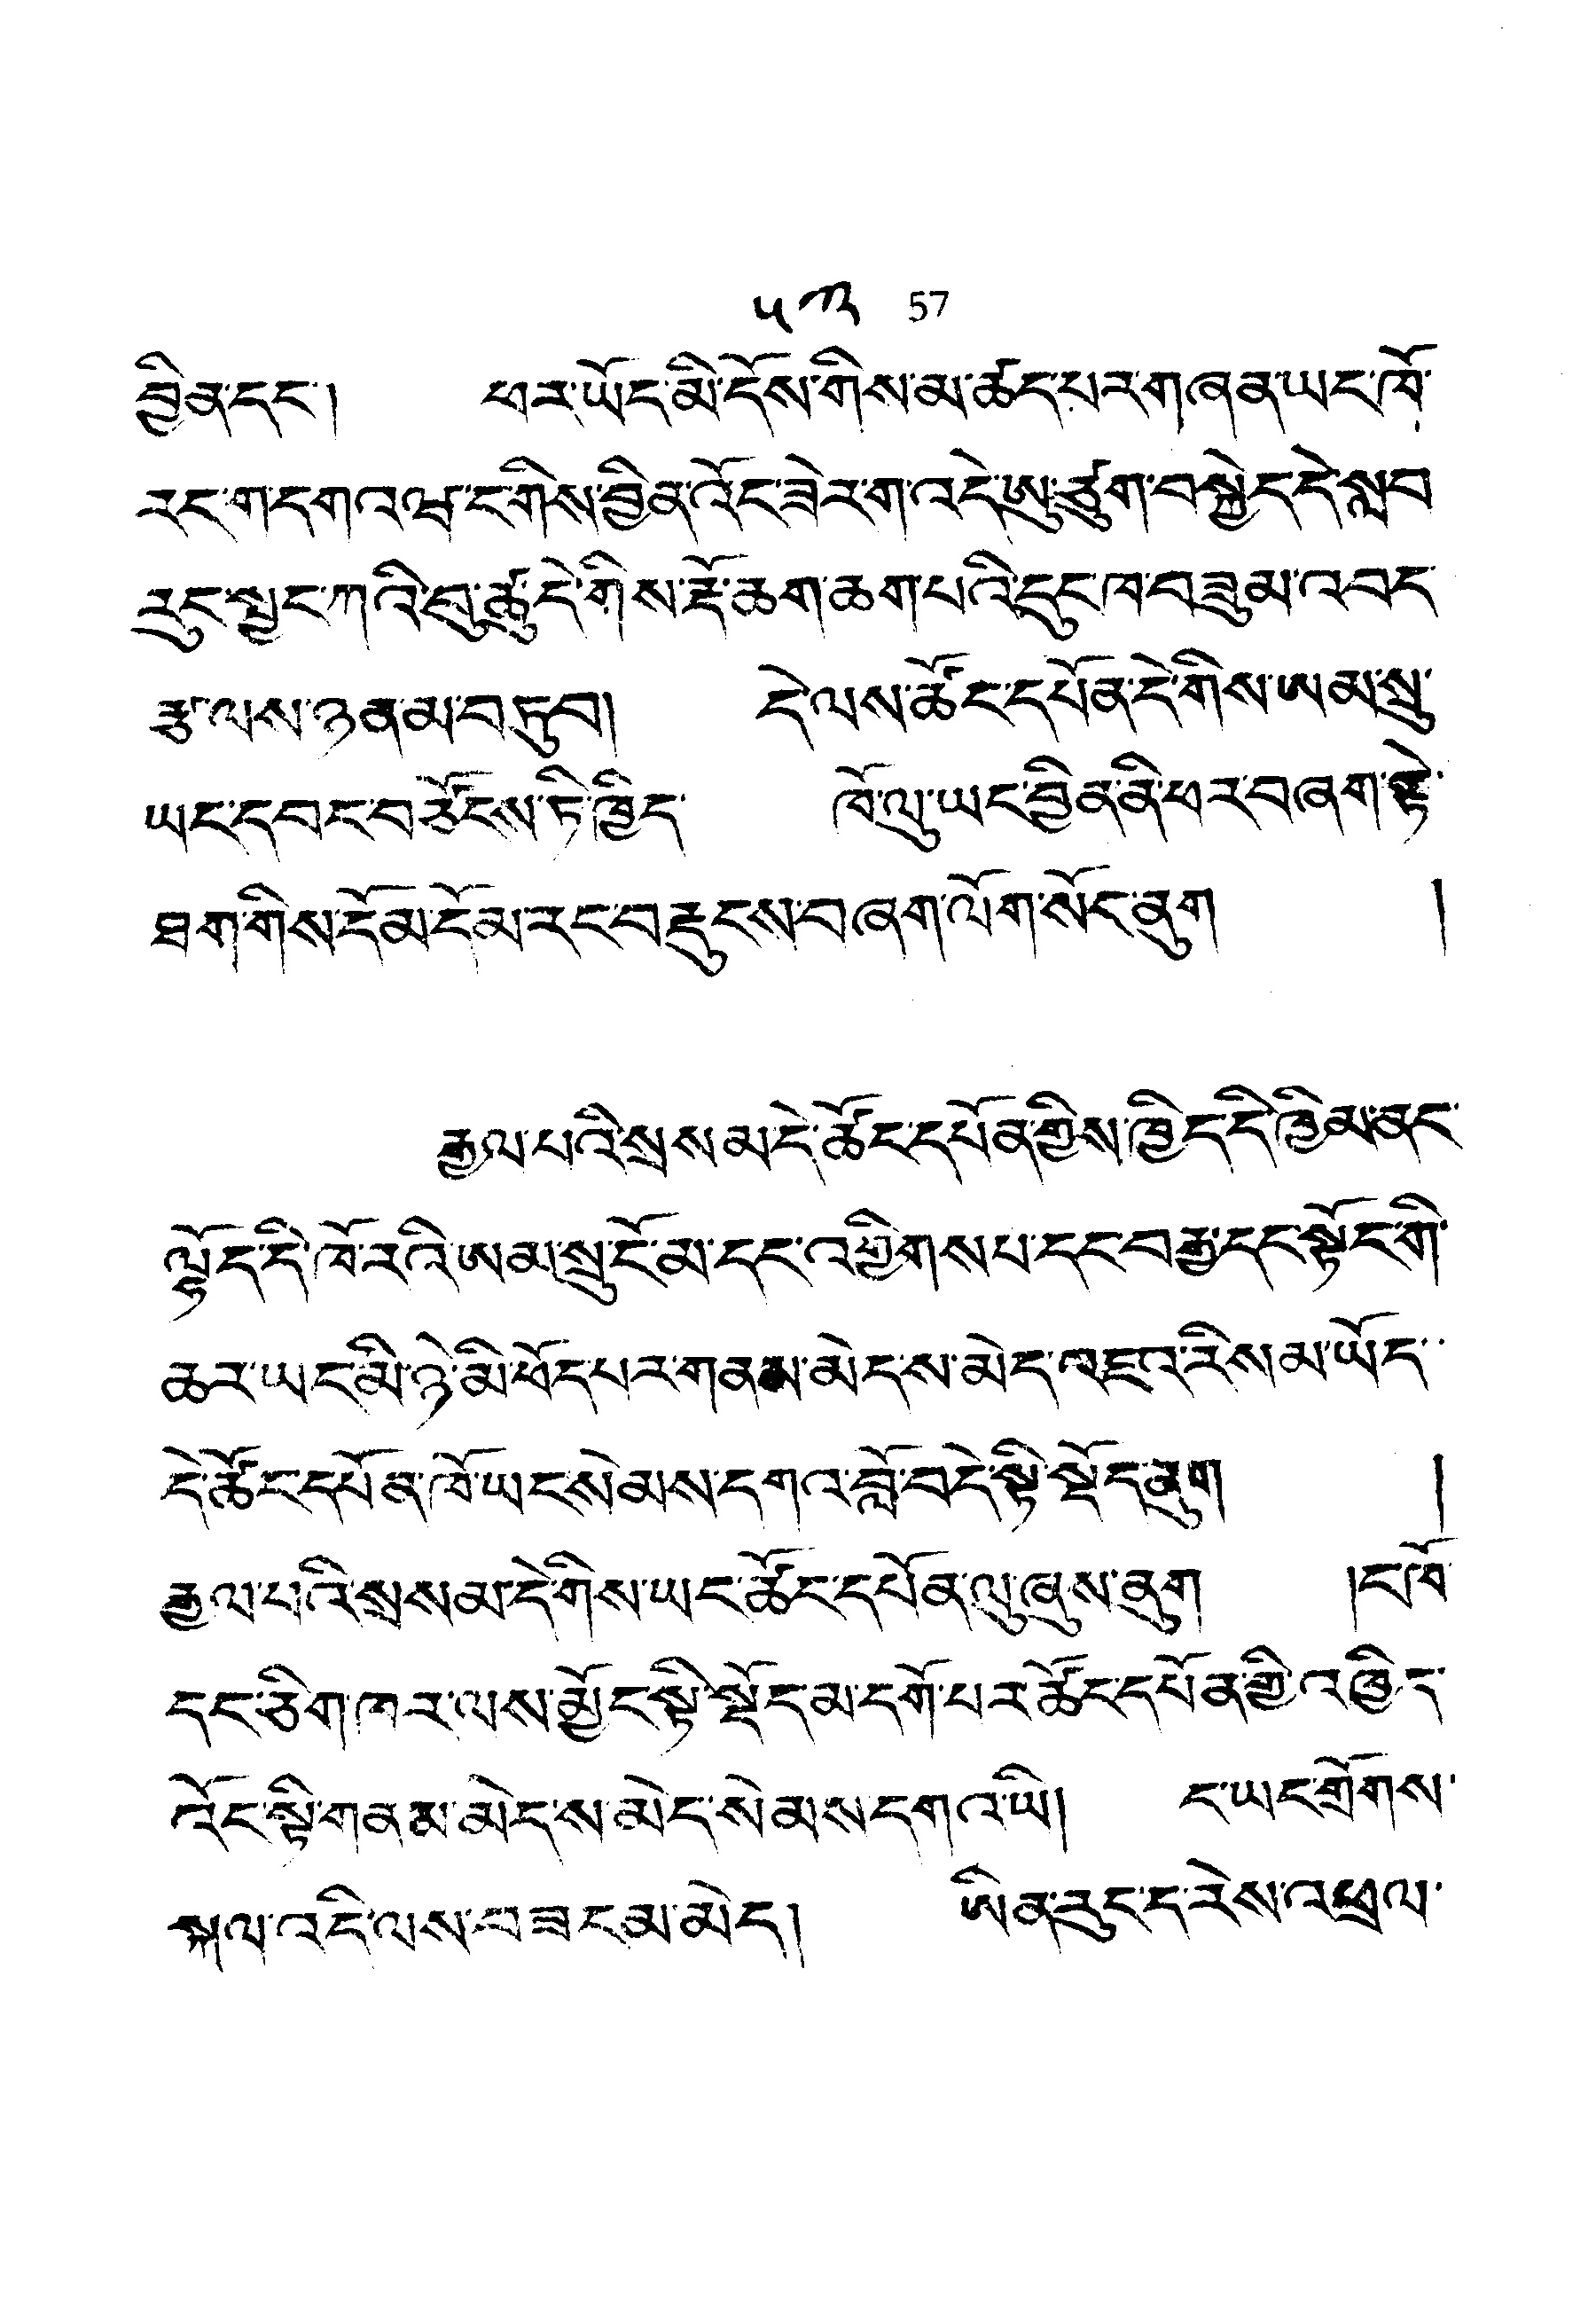 ༥༧ 57
བྱིན་དང་། ཕར་ཡོད་མི་དོས་གིས་མ་ཚད་པར་གཞན་ཡང་ཁོ་
རང་ག་དགའ་ཝ་ང་གིས་བྱིན་འོང་ཟེར་ག་འདེ་ཨུ་ཙུག་བསྐྱེད་དེ་སླབ
རུང་སྤྱང་ཀའི་བུ་ཚུ་དེ་གིས་རྡོ་ཆག་ཆག་པའི་དུང་ཁ་བཟུམ་འབད
རྩ་ལས་ཉན་མ་བཏུབ། དེ་ལས་ཚོང་དཔོན་དེ་གིས་ཨམ་སྲུ་
ཡང་དབང་བཙོངས་ཏི་ཁྱིད་ ཁོ་ལུ་ཡང་བྱིན་ནི་ཕར་བཞག་སྟེ་
ཐག་གིས་དོམ་དོམ་རང་བརྡུངས་བཞག་ལོག་སོང་ནུག །
རྒྱལ་པའི་སྲས་མ་དེ་ཚོང་དཔོན་གྱིས་ཁྱིད་དི་ཁྱིམ་ནང་
ལྷོད་དི་ཁོ་རའི་ཨམ་སྲུ་ངོ་མ་དང་འགྱིགས་པ་དང་བརྒྱ་དང་སྟོང་གི་
ཆར་ཡང་མི་ཉེ་མི་ཕོད་པར་གནམ་མེད་ས་མེད་འཇའ་རིས་མ་ཡོད་
དེ་ཚོང་དཔོན་ཁོ་ཡང་སེམས་དགའ་བློ་བདེ་སྟི་སྡོད་ནུག །
རྒྱལ་པའི་སྲས་མ་དེ་གིས་ཡང་ཚོང་དཔོན་ལུ་ཞུས་ནུག །ང་ཁོ
དང་ཅིག་ཁར་ལས་མྱོང་སྟི་སྡོད་མ་དགོ་པར་ཚོང་དཔོན་གྱི་འཁྱིད་
འོང་སྟི་གནམ་མེད་ས་མེད་སེམས་དགའ་ཡི། ད་ཡང་གྲོགས་
སྐལ་འདི་ལས་བཟང་མ་མེད། ཨིན་རུང་ད་རེས་འཕྲལ་